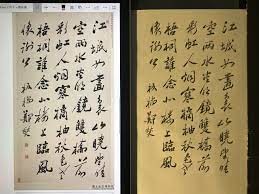 江城如畫裏山曉望晴
空兩水夾明鏡雙橋落
彩虹人烟寒橘柚秋色老
梧桐誰念北樓上臨風
懷謝公 板橋鄭燮
江城如畫裏山曉望晴
空兩水夾明鏡雙橋落
彩虹人烟寒橘柚秋色老
梧桐誰念北樓上臨風
懷謝公 板橋鄭燮